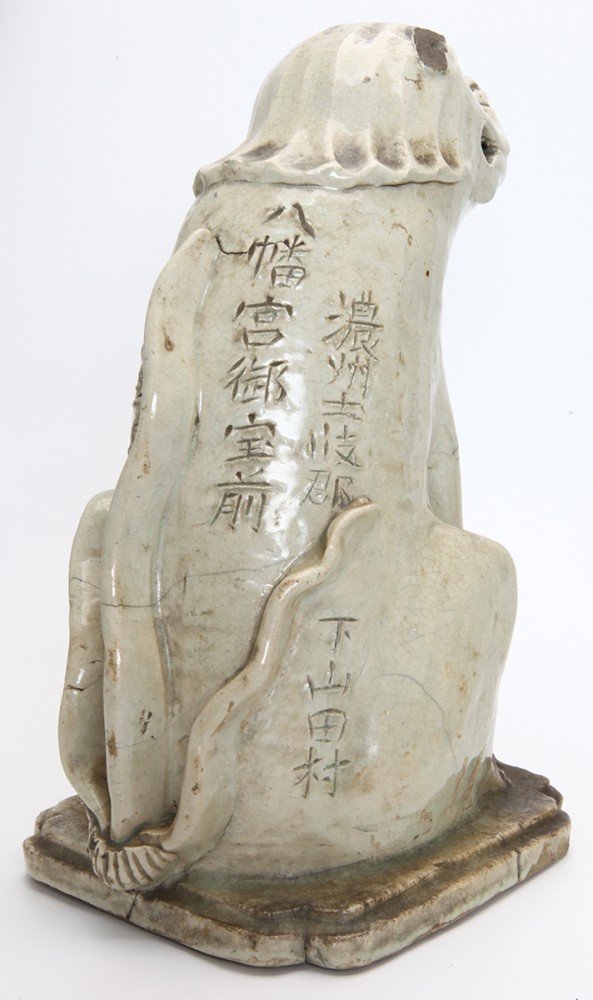 濃州土岐郡
下山田村
八幡宮御宝前